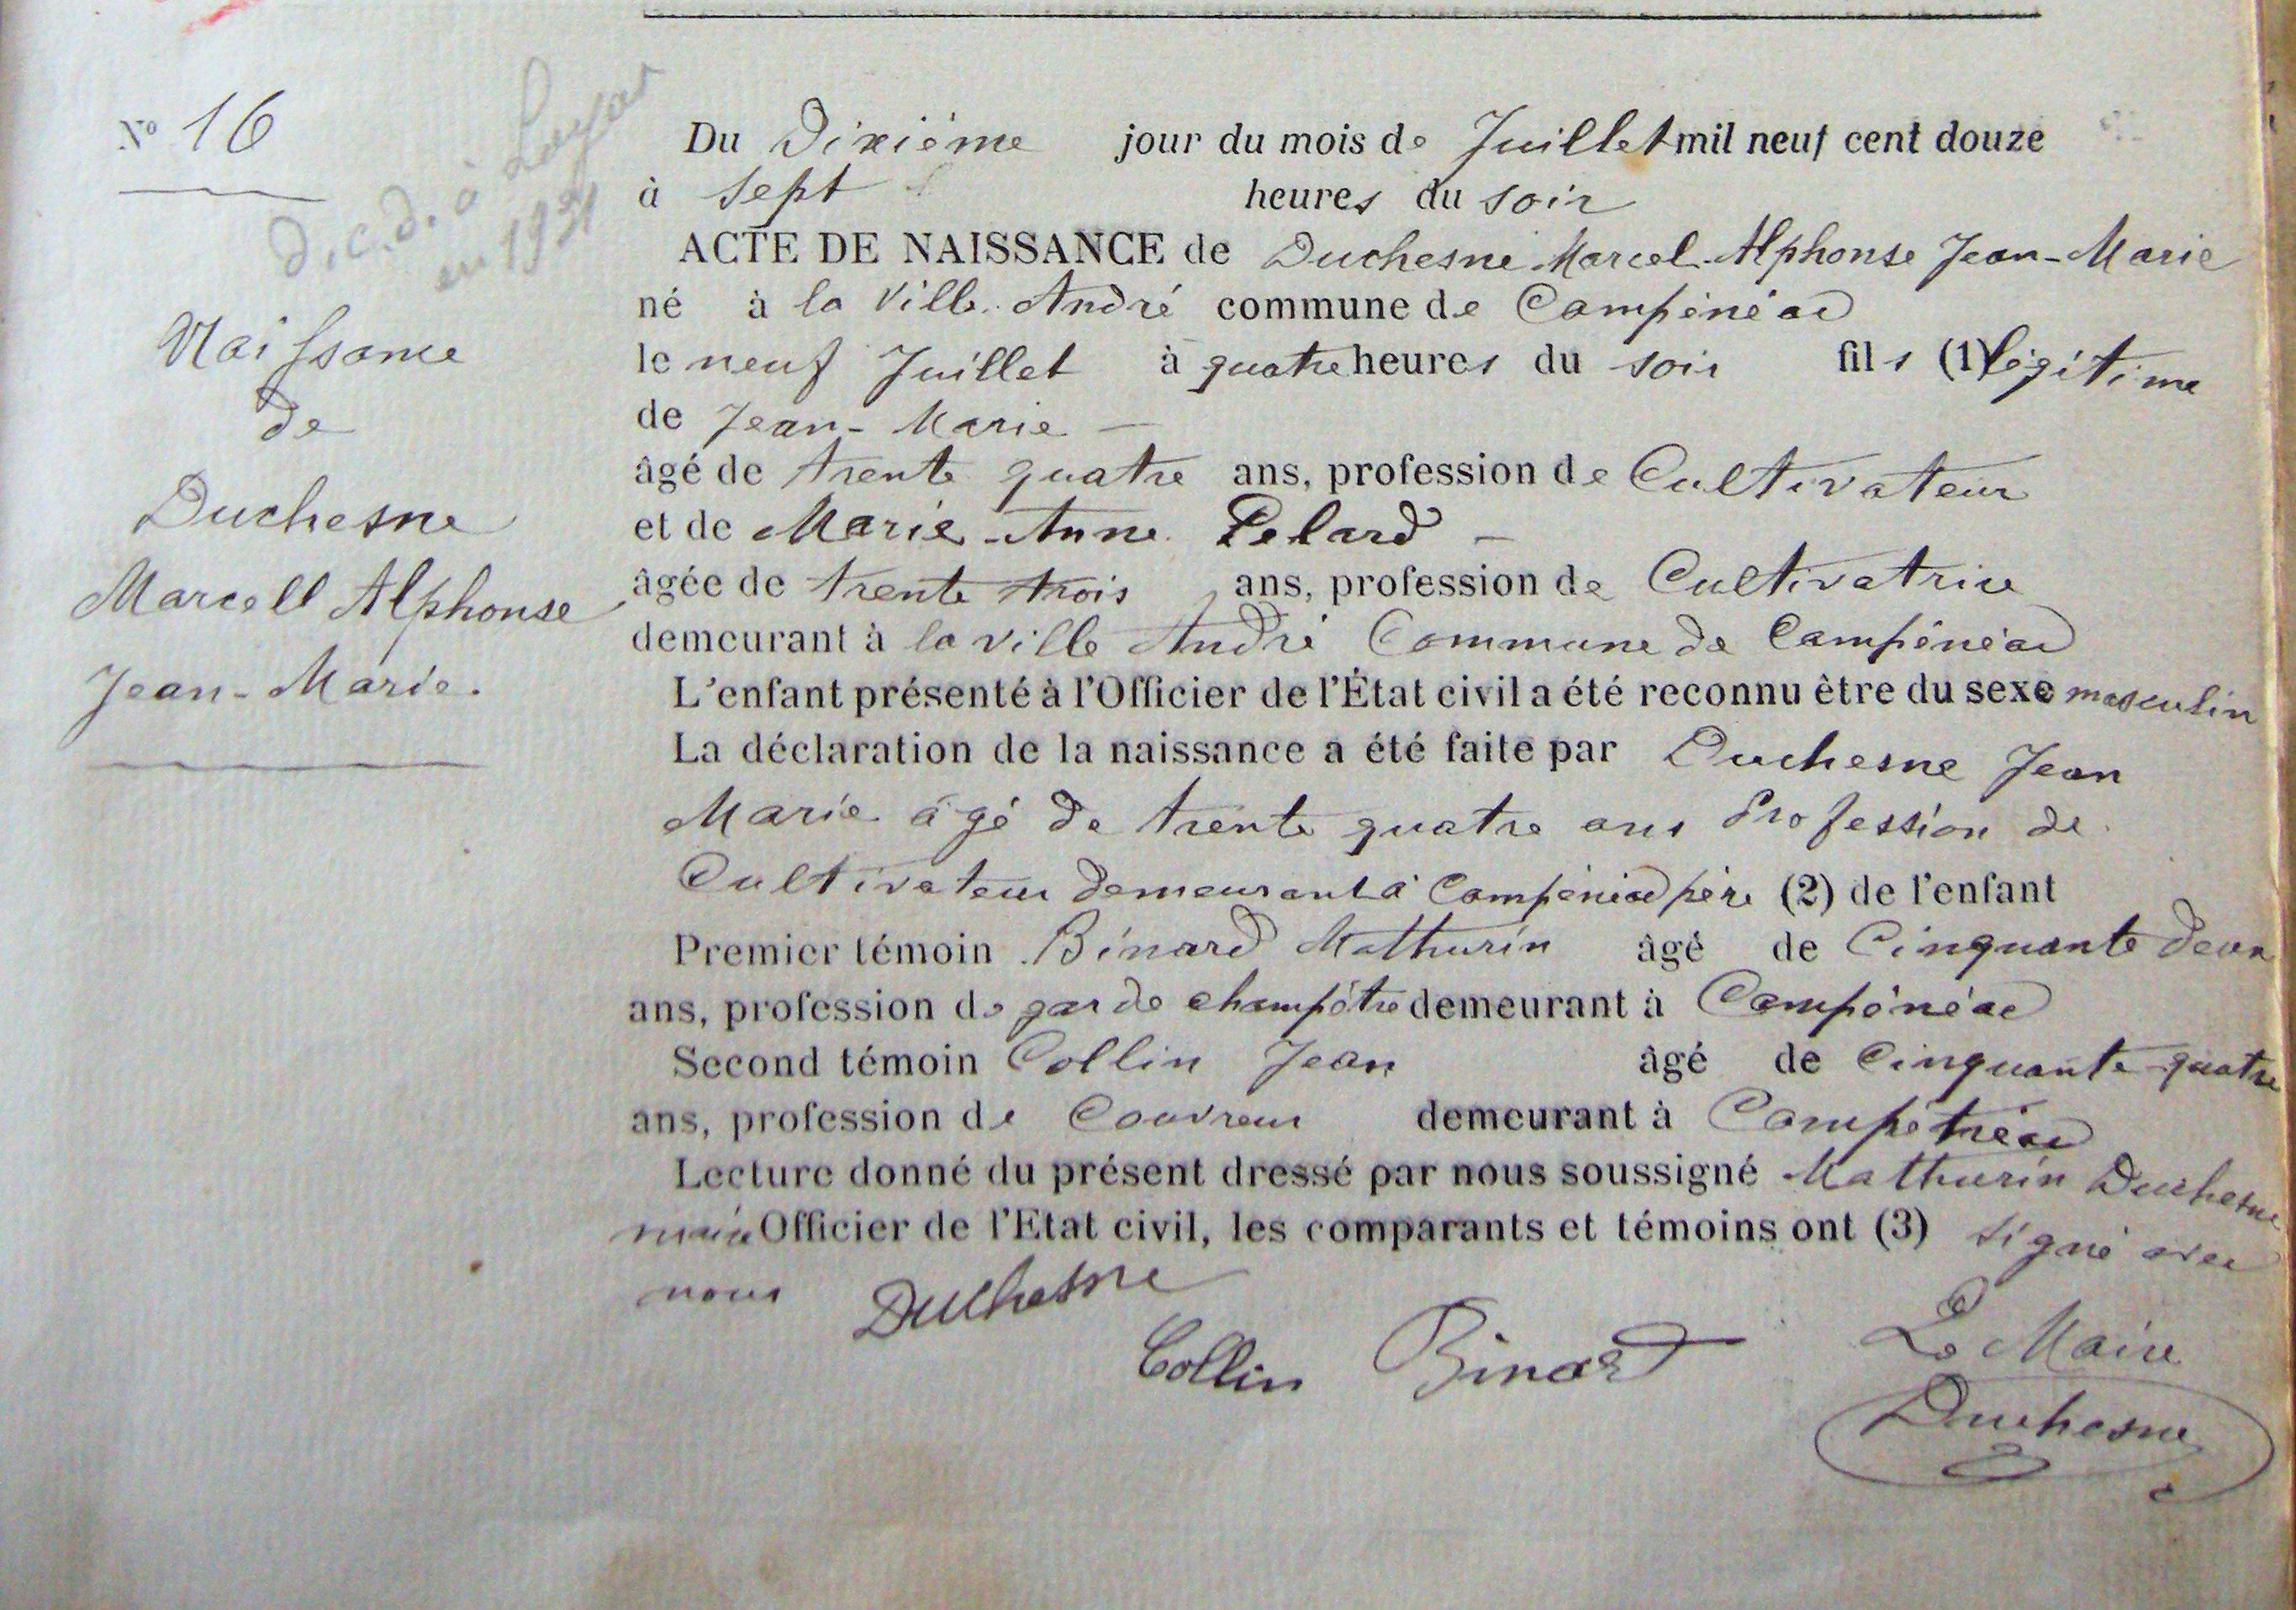 N° 16
d.c.d. à
en 1931
Naissance
de
Duchesne
Marcell Alphonse
Jean-Marie.
Du Dixième jour du mois de Juillet mil neuf cent douze
à sept heures du soir
ACTE DE NAISSANCE de Duchesne Marcel Alphonse Jean-Marie
né à la Ville André commune de Campénéac
le neuf Juillet à quatre heures du soir fils (1) légitime
de Jean-Marie —
âgé de trente quatre ans, profession de Cultivateur
et de Marie-Anne Pelard —
âgée de trente trois ans, profession de Cultivatrice
demeurant à la ville André Commune de Campénéac
L'enfant présenté à l'Officier de l'État civil a été reconnu être du sexe masculin
La déclaration de la naissance a été faite par Duchesne Jean
Marie âgé de trente quatre ans Profession de
Cultivateur demeurant à Campénéac père (2) de l'enfant
Premier témoin Binard Mathurin âgé de Cinquante deux
ans, profession de garde champêtre demeurant à Campénéac
Second témoin Collin Jean âgé de Cinquante-quatre
ans, profession de Couvreur demeurant à Campénéac
Lecture donné du présent dressé par nous soussigné Mathurin Duchesne
maire Officier de l'Etat civil, les comparants et témoins ont (3) signé avec
nous Duchesne
Collin Binard
Le Maire
Duchesne